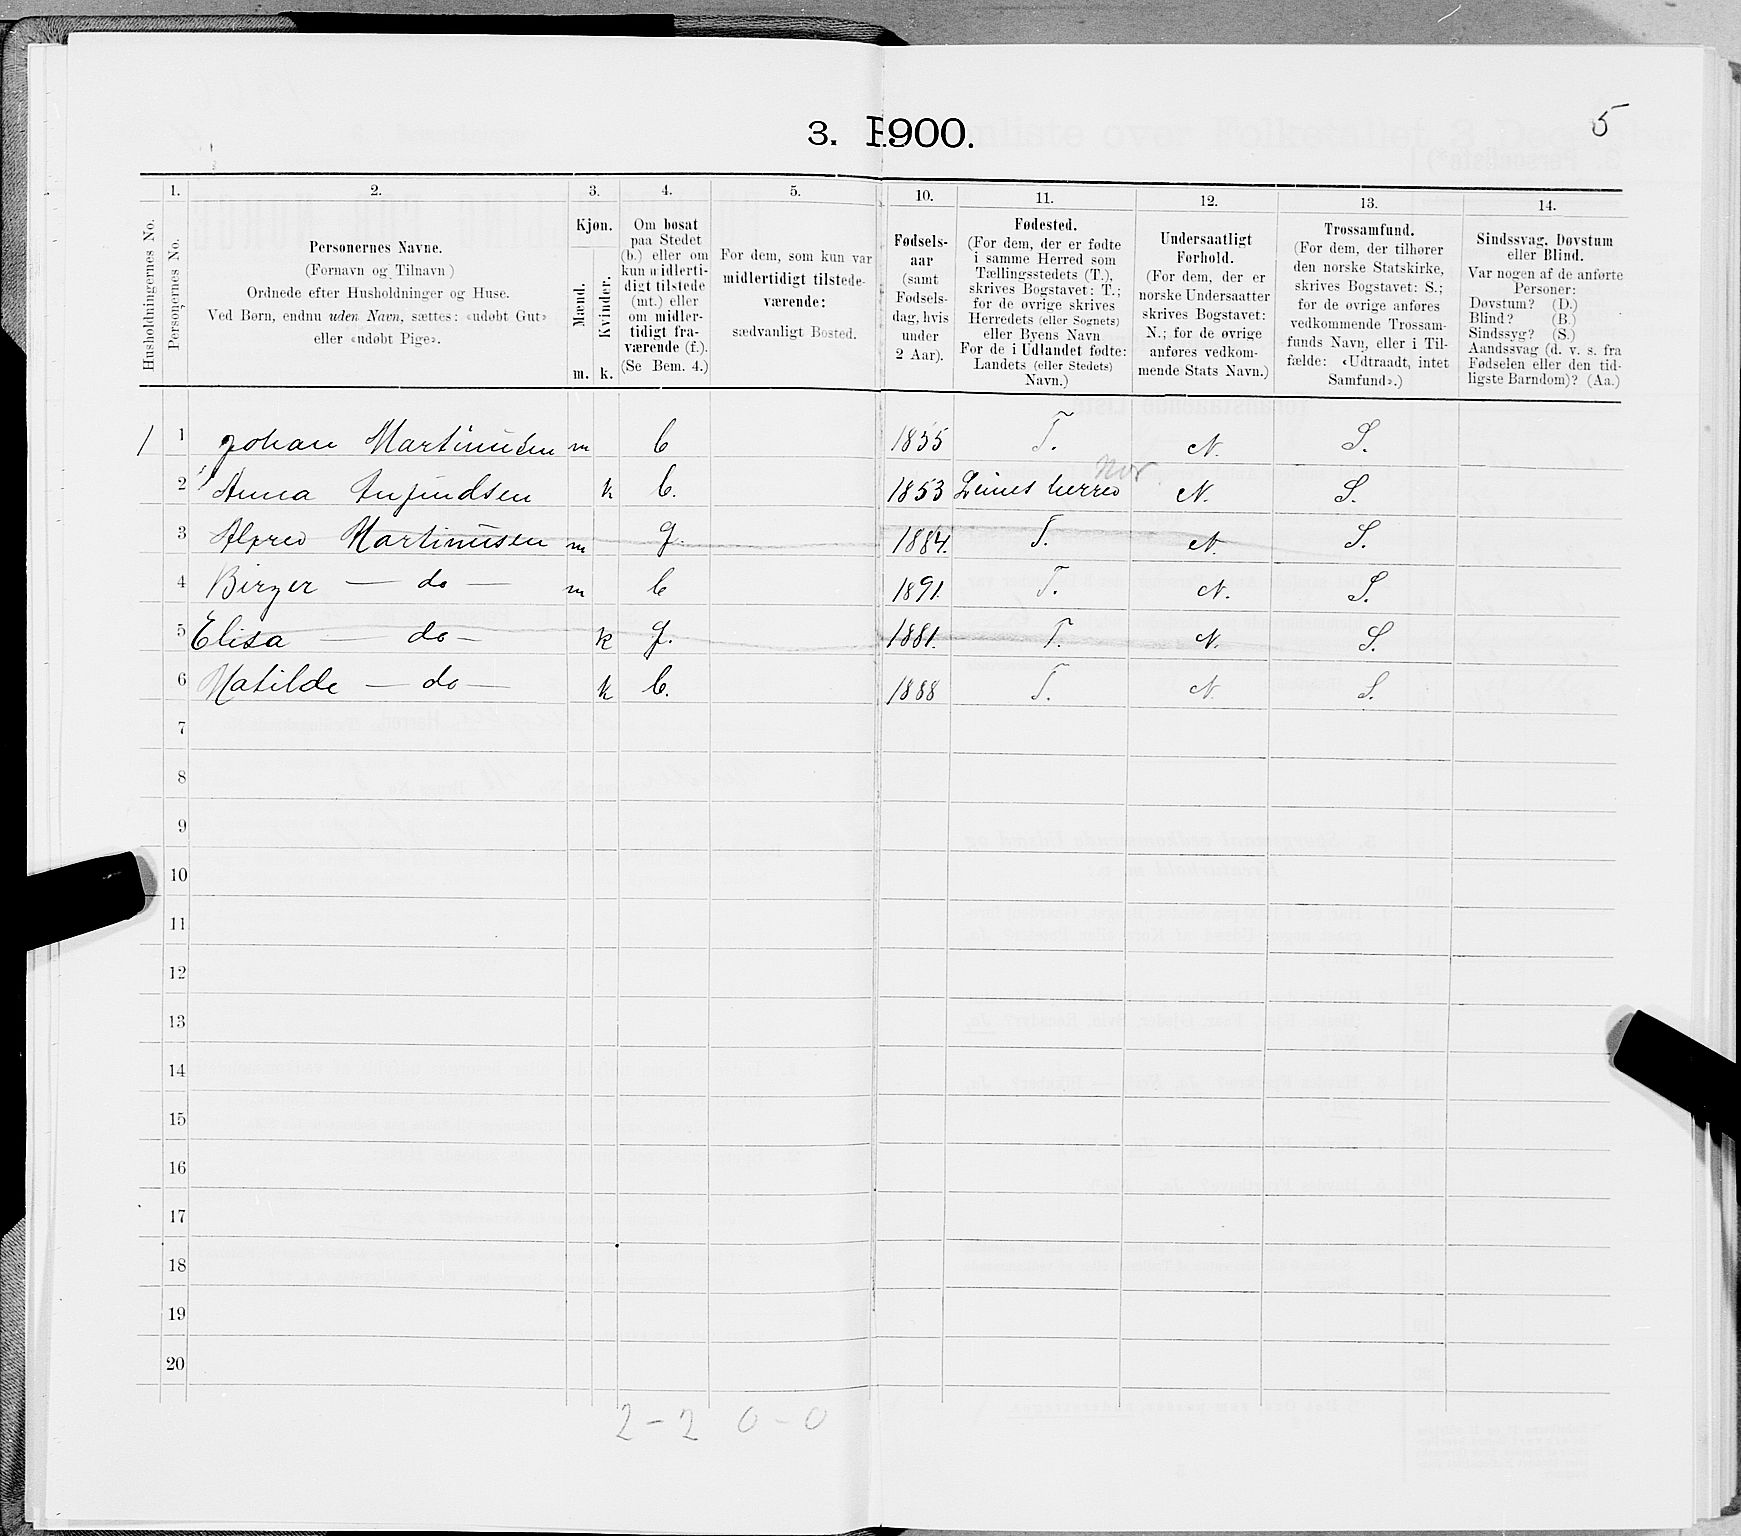 5
3. 1900.
1.
2.
3.
4.
5.
10.
11.
12.
13.
14.
Husholdningernes No.
Personernes No.
Personernes Navne.
(Fornavn og Tilnavn)
Ordnede efter Husholdninger og Huse.
Ved Børn, endnu uden Navn, sættes: «udøbt Gut»
eller «udøbt Pige».
Kjøn.
Mænd.
Kvinder.
m. k.
Om bosat
paa Stedet
(b.) eller om
kun midlerti-
digt tilstede
(mt.) eller
om midler-
tidigt fra-
værende (f.).
(Se Bem. 4.)
For dem, som kun var
midlertidigt tilstede-
værende:
sædvanligt Bosted.
Fødsels-
aar
(samt
Fødsels-
dag, hvis
under
2 Aar).
Fødested.
(For dem, der er fødte
i samme Herred som
Tællingsstedets (T.),
skrives Bogstavet: T.;
for de øvrige skrives
Herredets (eller Sognets)
eller Byens Navn
For de i Udlandet fødte:
Landets (eller Stedets)
Navn.)
Undersaatligt
Forhold.
(For dem, der er
norske Undersaatter
skrives Bogstavet:
N.; for de øvrige
anføres vedkom-
mende Stats Navn.)
Trossamfund.
(For dem, der tilhører
den norske Statskirke,
skrives Bogstavet: S.;
for de øvrige anføres
vedkommende Trossam-
funds Navn, eller i Til-
fælde: «Udtraadt, intet
Samfund».)
Sindssvag, Døvstum
eller Blind.
Var nogen af de anførte
Personer:
Døvstum? (D.)
Blind? (B.)
Sindssyg? (S.)
Aandssvag (d. v. s. fra
Fødselen eller den tid-
ligste Barndom)? (Aa.)
1 1 Johan Martinusen m b 1855 T. N. S.
2 Anna k b. 1853 herred N. S.
3 Alfred Martinusen m 1884. T. N. S.
4 Birger — do — m b 1891. T. N. S.
5 Elisa — do — k 1881. T. N. S.
6 Matilde — do — k b. 1888 T. N. S.
7
8
9
10
11
12
13
14
15
16
17
18
19
20
2 - 2 0 - 0